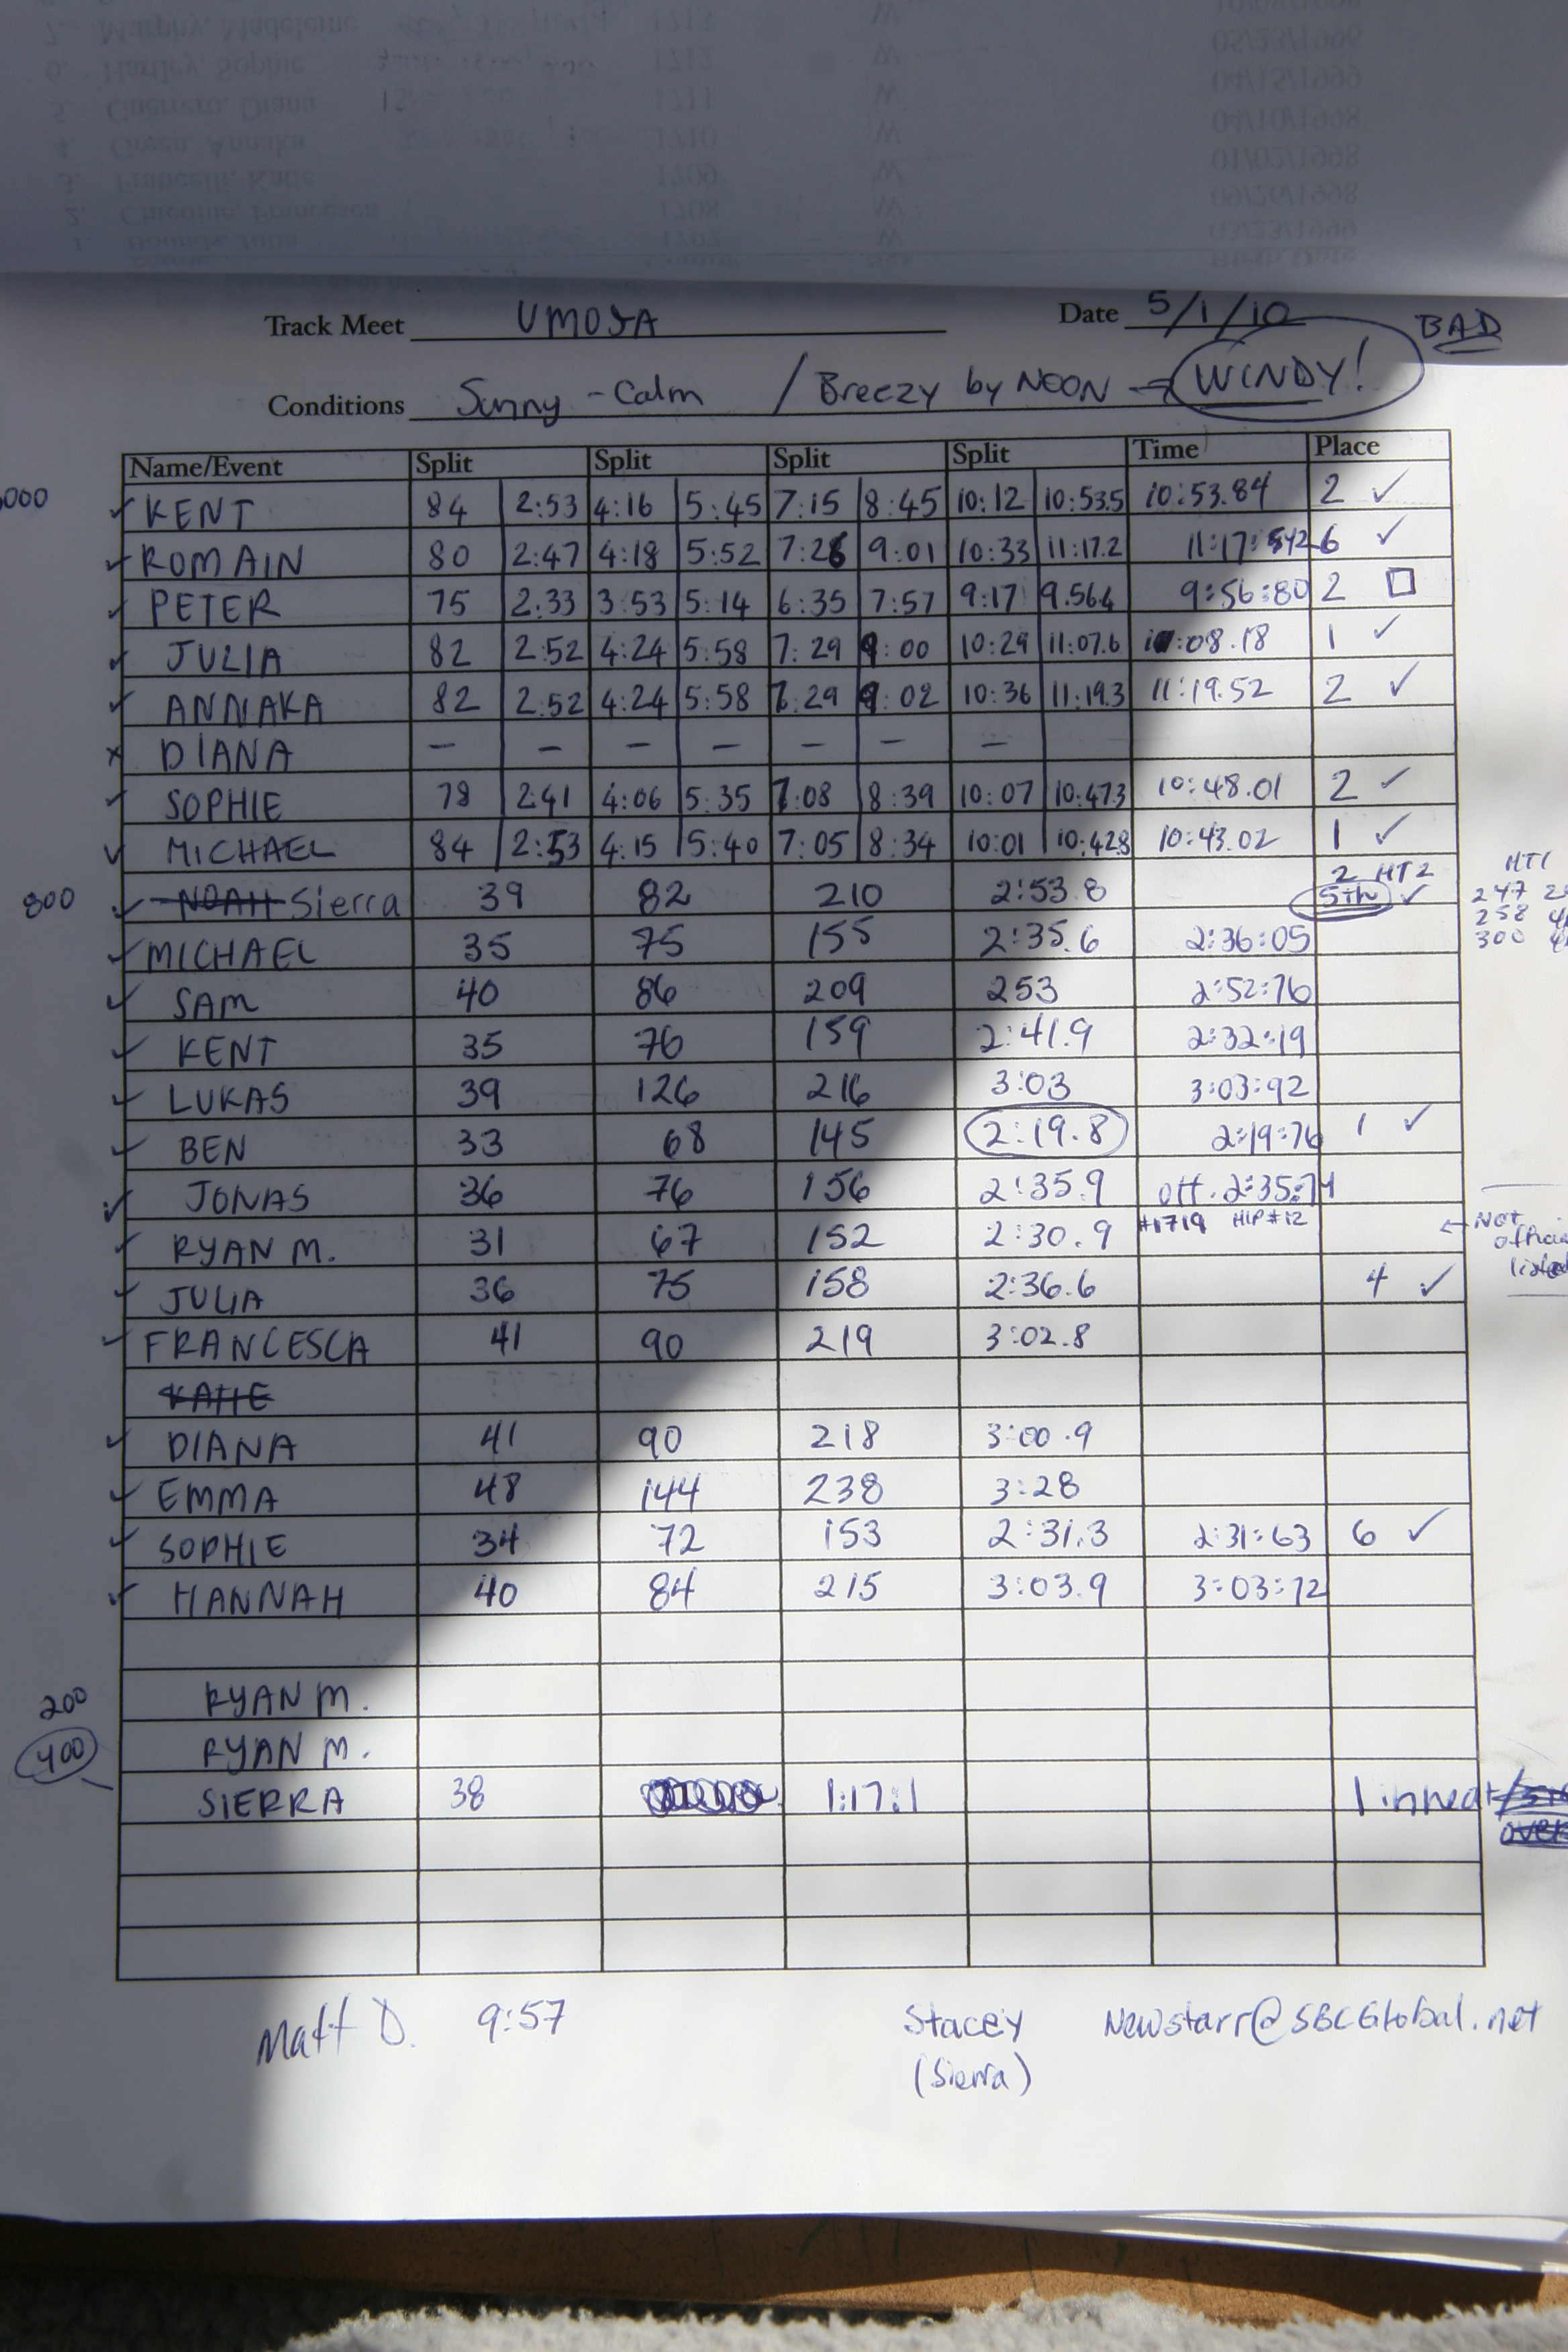 Track Meet UMOJA Date 5/1/10 BAD
Conditions Sunny - Calm / Breezy by NOON → WINDY!
Name/Event Split Split Split Split Time Place
000 ✓ KENT 84 2:53 4:16 5:45 7:15 8:45 10:12 10:53.5 10:53.84 2 ✓
✓ ROMAIN 80 2:47 4:18 5:52 7:26 9:01 10:33 11:17.2 6 ✓
✓ PETER 75 2:33 3:53 5:14 6:35 7:57 9:17 9.56.4 9:56:80 2 □
✓ JULIA 82 2:52 4:24 5:58 7:29 9:00 10:29 11:07.6 11:08.18 1 ✓
✓ ANNAKA 82 2:52 4:24 5:58 7:29 9:02 10:36 11:19.3 11:19.52 2 ✓
x DIANA – – – – – – –
✓ SOPHIE 78 2:41 4:06 5:35 7:08 8:39 10:07 10:47.3 10:48.01 2 ✓
✓ MICHAEL 84 2:53 4:15 5:40 7:05 8:34 10:01 10:42.8 10:43.02 1 ✓
2 HT2 HT1
800 ✓ NOAH Sierra 39 82 210 2:53.8 5th ✓ 247
258
300
✓ MICHAEL 35 75 155 2:35.6 2:36:05
✓ SAM 40 86 209 253 2:52:76
✓ KENT 35 76 159 2:41.9 2:32:19
✓ LUKAS 39 126 216 3:03 3:03:92
✓ BEN 33 68 145 2:19.8 2:19:76 1 ✓
✓ JONAS 36 76 156 2:35.9 off. 2:35:74
✓ RYAN M. 31 67 152 2:30.9 #1719 HIP #12 ← NOT
✓ JULIA 36 75 158 2:36.6 4 ✓
✓ FRANCESCA 41 90 219 3:02.8
KATIE
✓ DIANA 41 90 218 3:00.9
✓ EMMA 48 144 238 3:28
✓ SOPHIE 34 72 153 2:31.3 2:31:63 6 ✓
✓ HANNAH 40 84 215 3:03.9 3:03:72
200 RYAN M.
400 RYAN M.
SIERRA 38 1:17:1 1 in heat
Matt D. 9:57 Stacey Newstarr@SBCGlobal.net
(Sierra)